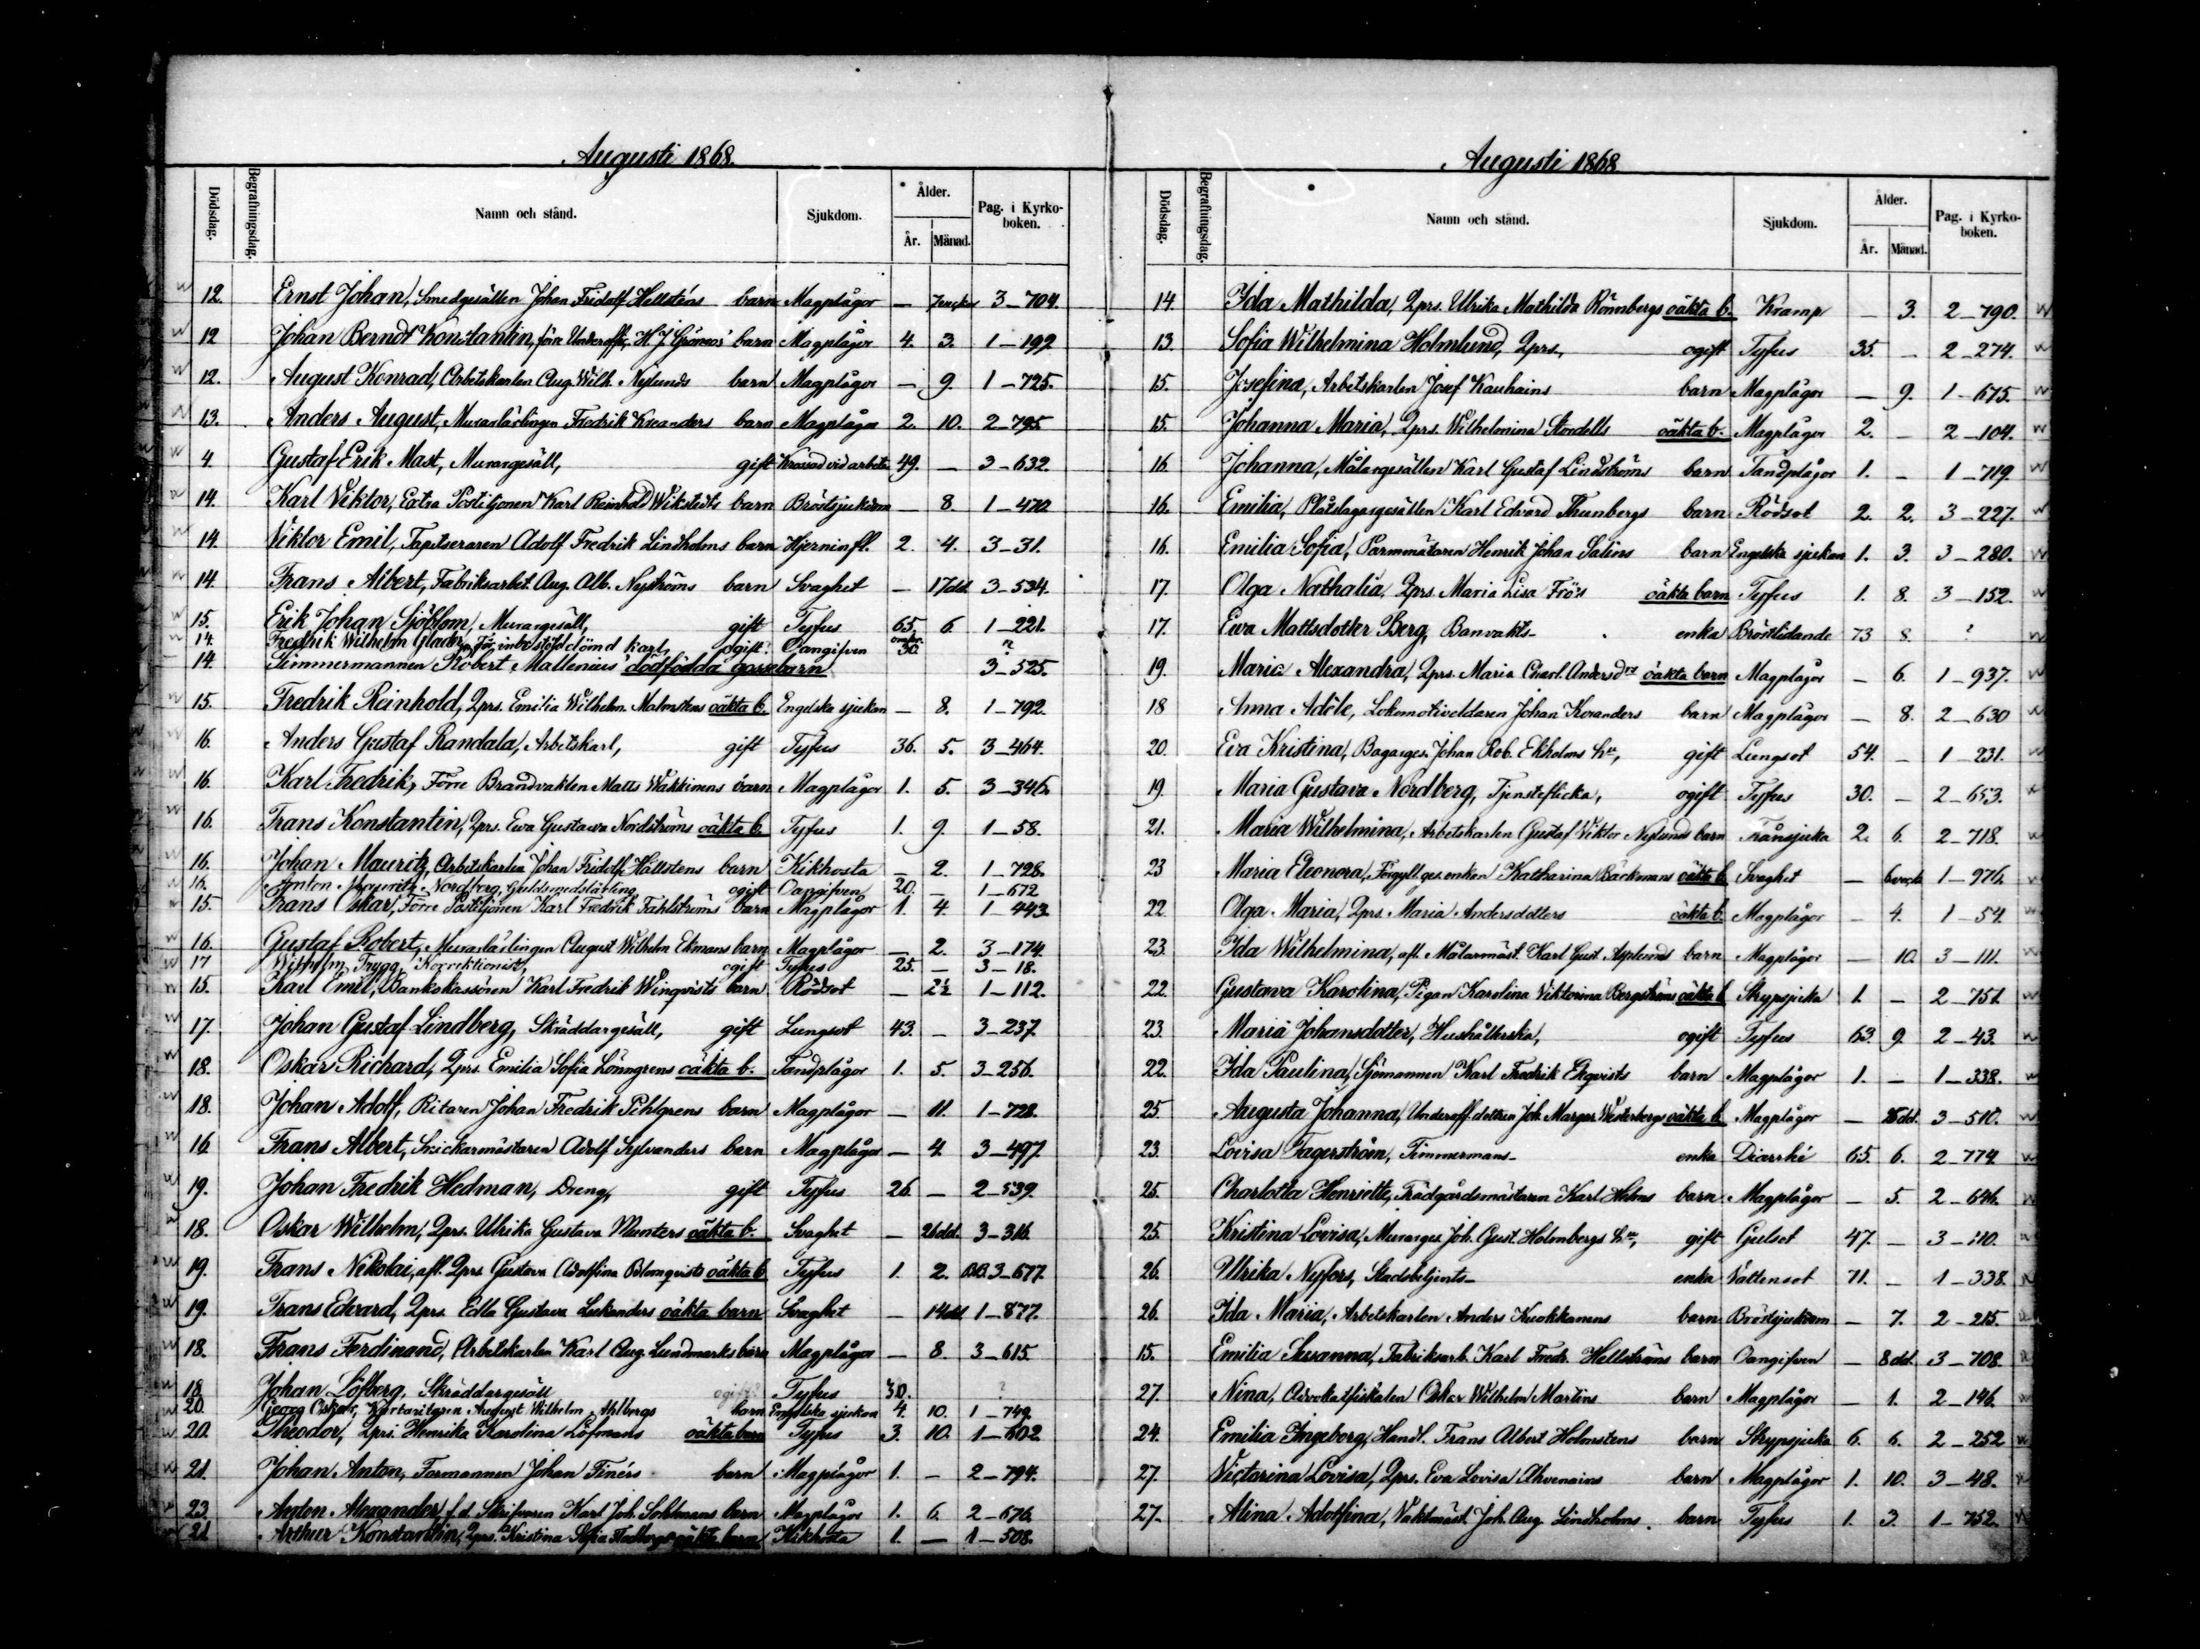 Augusti 1868.
Dödsdag. Begrafningsdag. Namn och stånd. Sjukdom. Ålder. År. Månad. Pag. i Kyrko-boken.
12. Ernst Johan, Smedgesällen Johan Fridolf Hellsténs barn Magplågor — 7 veckor 3—704.
12 Johan Berndt Konstantin, förre Underoff. H. J. Grönroos' barn Magplågor 4. 3. 1—192
12. August Konrad, Arbetskarlen Aug. Wilh. Nylunds barn Magplågor — 9. 1—725.
13. Anders August, Murarlärlingen Fredrik Kreanders barn Magplågor 2. 10. 2—795.
4. Gustaf Erik Mast, Murargesäll, gift Krossad vid arbete 49. — 3—632.
14. Karl Viktor, Extra Postiljonen Karl Reinhold Wikstedts barn Bröstsjukdom — 8. 1—470
14. Viktor Emil, Tapitseraren Adolf Fredrik Lindholms barn Hjerninfl. 2. 4. 3—31.
14. Frans Albert, Fabriksarbet. Aug. Alb. Nyströms barn Svaghet — 17 dd. 3—534.
15. Erik Johan Sjöblom, Murargesäll, gift Tyfus 65. 6. 1—221.
14. Fredrik Wilhelm ogift. Oangifven 30 ?
14. Timmermannen Robert Mallenius' dödfödda gossebarn 3—525.
15. Fredrik Reinhold, Qprs. Emilia Wilhelm. Malmstens oäkta b. Engelska sjukan — 8. 1—792.
16. Anders Gustaf Randala, Arbetskarl, gift Tyfus 36. 5. 3—464.
16. Karl Fredrik, Förre Brandvakten Matts Wäkkinens barn Magplågor 1. 5. 3—346.
16. Frans Konstantin, Qprs. Ewa Gustawa Nordströms oäkta b. Tyfus 1. 9. 1—58.
16. Johan Mauritz, Arbetskarlen Johan Fridolf Hällstens barn Kikhosta — 2. 1—728.
16. Anton Mauritz Nordberg, Guldsmedslärling ogift Oangifven 20. — 1—672
15. Frans Oskar, Förre Postiljonen Karl Fredrik Fahlströms barn Magplågor 1. 4. 1—443.
16. Gustaf Robert, Murarlärlingen August Wilhelm Ekmans barn Magplågor — 2. 3—174.
17 Wilhelm Trygg, Korrektionist, ogift Tyfus 25. — 3—18.
15. Karl Emil, Bankokassören Karl Fredrik Winqvists barn Rödsot — 2½ 1—112.
17. Johan Gustaf Lindberg, Skräddargesäll, gift Lungsot 43. — 3—237.
18. Oskar Richard, Qprs. Emilia Sofia Lönngrens oäkta b. Tandplågor 1. 5. 3—256.
18. Johan Adolf, Ritaren Johan Fredrik Pihlgrens barn Magplågor — 11. 1—728.
16. Frans Albert, Snickarmästaren Adolf Sylvanders barn Magplågor — 4. 3—497.
19. Johan Fredrik Hedman, Dreng, gift Tyfus 26. — 2—539.
18. Oskar Wilhelm, Qprs. Ulrika Gustava Munters oäkta b. Svaghet — 26 dd. 3—316.
19. Frans Nikolai, afl. Qprs Gustava Adolfina Blomqvists oäkta b. Tyfus 1. 2. 3—677.
19. Frans Edvard, Qprs. Edla Gustava Leskanders oäkta barn Svaghet — 14 dd. 1—877.
18. Frans Ferdinand, Arbetskarlen Karl Aug. Lundmarks barn Magplågor — 8. 3—615.
18. Johan Löfberg, Skräddargesäll ogift? Tyfus 30. ?
20. Georg Oskar, August Wilhelm Ahlbergs barn Engelska sjukan 4. 10. 1—749.
20. Theodor, Qprs. Henrika Karolina Löfmans oäkta barn Tyfus 3. 10. 1—602
21. Johan Anton, Formannen Johan Finérs barn Magplågor 1. — 2—794.
23. Anton Alexander, f.d. Skrifvaren Karl Joh. Soldmans barn Magplågor 1. 6. 2—676.
21. Arthur Konstantin, Qprs. Kristina Sofia oäkta barn Kikhosta 1. — 1—508.
Augusti 1868
Dödsdag. Begrafningsdag. Namn och stånd. Sjukdom. Ålder. År. Månad. Pag. i Kyrko-boken.
14. Ida Mathilda, Qprs. Ulrika Mathilda Rönnbergs oäkta b. Kramp — 3. 2—790.
13. Sofia Wilhelmina Holmlund, Qprs., ogift Tyfus 35. — 2—274.
15. Josefina, Arbetskarlen Josef Kauhains barn Magplågor — 9. 1—675.
15. Johanna Maria, Qprs. Wilhelmina Stordells oäkta b. Magplågor 2. — 2—104.
16. Johanna, Målargesällen Karl Gustaf Lindströms barn Tandplågor 1. — 1—719.
16. Emilia, Plåtslagargesällen Karl Edvard Thunbergs barn Rödsot 2. 2. 3—227.
16. Emilia Sofia, Parmmätaren Henrik Johan Salins barn Engelska sjukan 1. 3. 3—280.
17. Olga Nathalia, Qprs. Maria Lisa Frös oäkta barn Tyfus 1. 8. 3—152.
17. Ewa Mattsdotter Berg, Banvakts- enka Bröstlidande 73 8. ?
19. Maria Alexandra, Qprs. Maria Charl. Andersdrs oäkta barn Magplågor — 6. 1—937.
18 Anna Adèle, Lokomotiveldaren Johan Koranders barn Magplågor — 8. 2—630
20. Eva Kristina, Bagarges. Johan Rob. Ekholms hu, gift Lungsot 54. — 1—231.
19. Maria Gustava Nordberg, Tjensteflicka, ogift Tyfus 30. — 2—653.
21. Maria Wilhelmina, Arbetskarlen Gustaf Viktor Nylunds barn Trånsjuka 2. 6. 2—718.
23 Maria Eleonora, Förgyll.ges.enkan Katharina Bäckmans oäkta b. Svaghet — 6 veck. 1—976.
22 Olga Maria, Qprs. Maria Andersdotters oäkta b. Magplågor — 4. 1—54.
23. Ida Wilhelmina, afl. Målarmäst. Karl Gust. Asplunds barn Magplågor — 10. 3—111.
22. Gustawa Karolina, Pigan Karolina Viktorina Bergströms oäkta b. Strypsjuka 1. — 2—751.
23. Maria Johansdotter, Hushållerska, ogift Tyfus 63. 9. 2—43.
22. Ida Paulina, Sjömannen Karl Fredrik Ekqvists barn Magplågor 1. — 1—338.
25. Augusta Johanna, Underoff.dottren Joh. Margar. Westerbergs oäkta b. Magplågor — dd. 3—510.
23. Lovisa Fagerström, Timmermans- enka Diarrhé 65. 6. 2—774.
25. Charlotta Henriette, Trädgårdsmästaren Karl Holms barn Magplågor — 5. 2—646.
25. Kristina Lovisa, Murarges. Joh. Gust. Holmbergs hu, gift Gulsot 47. — 3—110.
26. Ulrika Nyfors, Stadsbetjents- enka Vattensot 71. — 1—338.
26. Ida Maria, Arbetskarlen Anders Kuokkanens barn Bröstsjukdom — 7. 2—215.
15. Emilia Susanna, Fabriksarb. Karl Fredr. Hellströms barn Oangifven — 8 dd. 3—708.
27. Nina, Advokatfiskalen Oskar Wilhelm Martins barn Magplågor — 1. 2—146.
24. Emilia Ingeborg, Handl. Frans Albert Holmstens barn Strypsjuka 6. 6. 2—252
27. Victorina Lovisa, Qprs. Eva Lovisa Ahvenains barn Magplågor 1. 10. 3—48.
27. Alina Adolfina, Vaktmäst. Joh. Aug. Lindholms barn Tyfus 1. 3. 1—752.